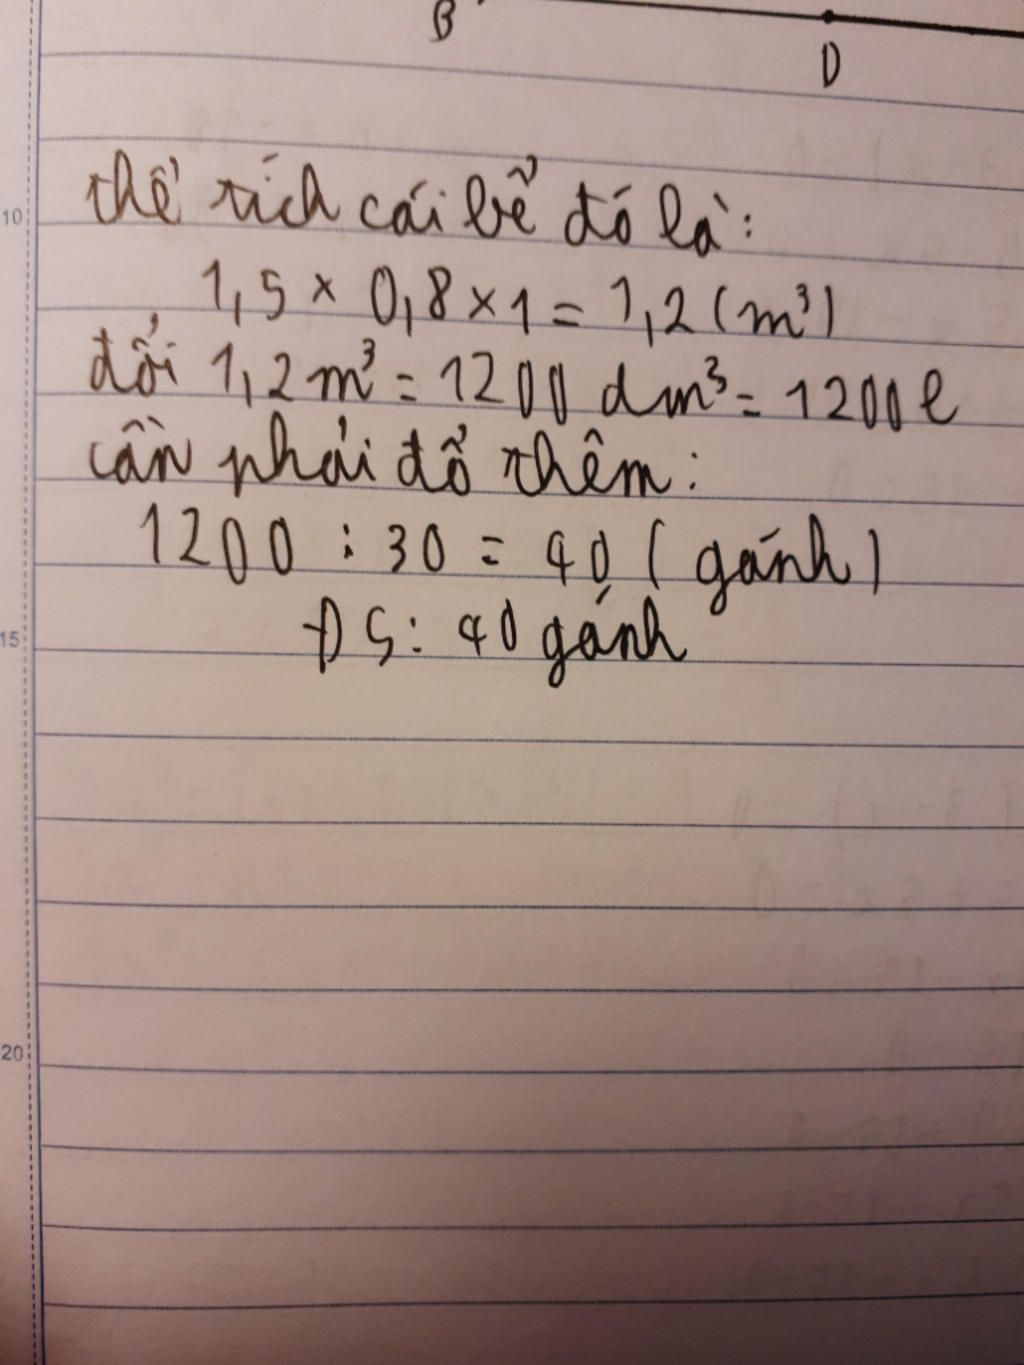 B
D
10
thể tích cái bể đó là:
1,5 × 0,8 × 1 = 1,2 (m³)
đổi 1,2 m³ = 1200 dm³ = 1200 l
cần phải đổ thêm:
1200 : 30 = 40 (gánh)
15
ĐS: 40 gánh
20